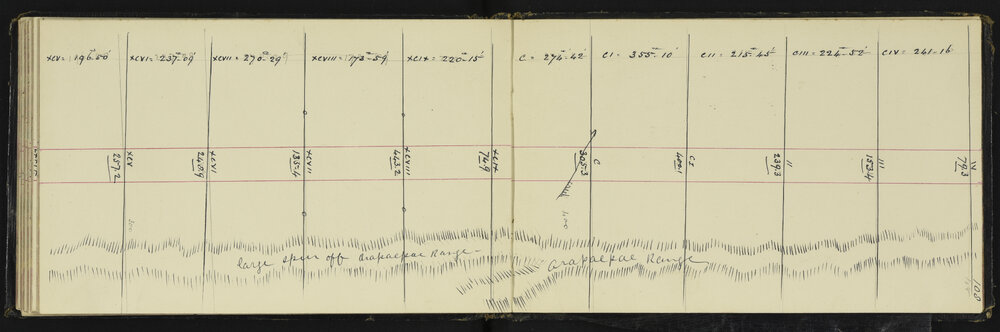 XCV = 196-50' XCVI = 237-09' XCVII = 270-29' XCVIII = 173-59' XCIX = 220-15' C = 274-42' CI = 355-10' CII = 215-45' CIII = 224-52' CIV = 241-16
XCV XCVI XCVII XCVIII XCIX C CI II III IV
257.2 240.9 135.4 443.2 74.9 305.3 400.1 239.3 153.4 79.3
large spur off Arapaepae Range
Arapaepae Range
100